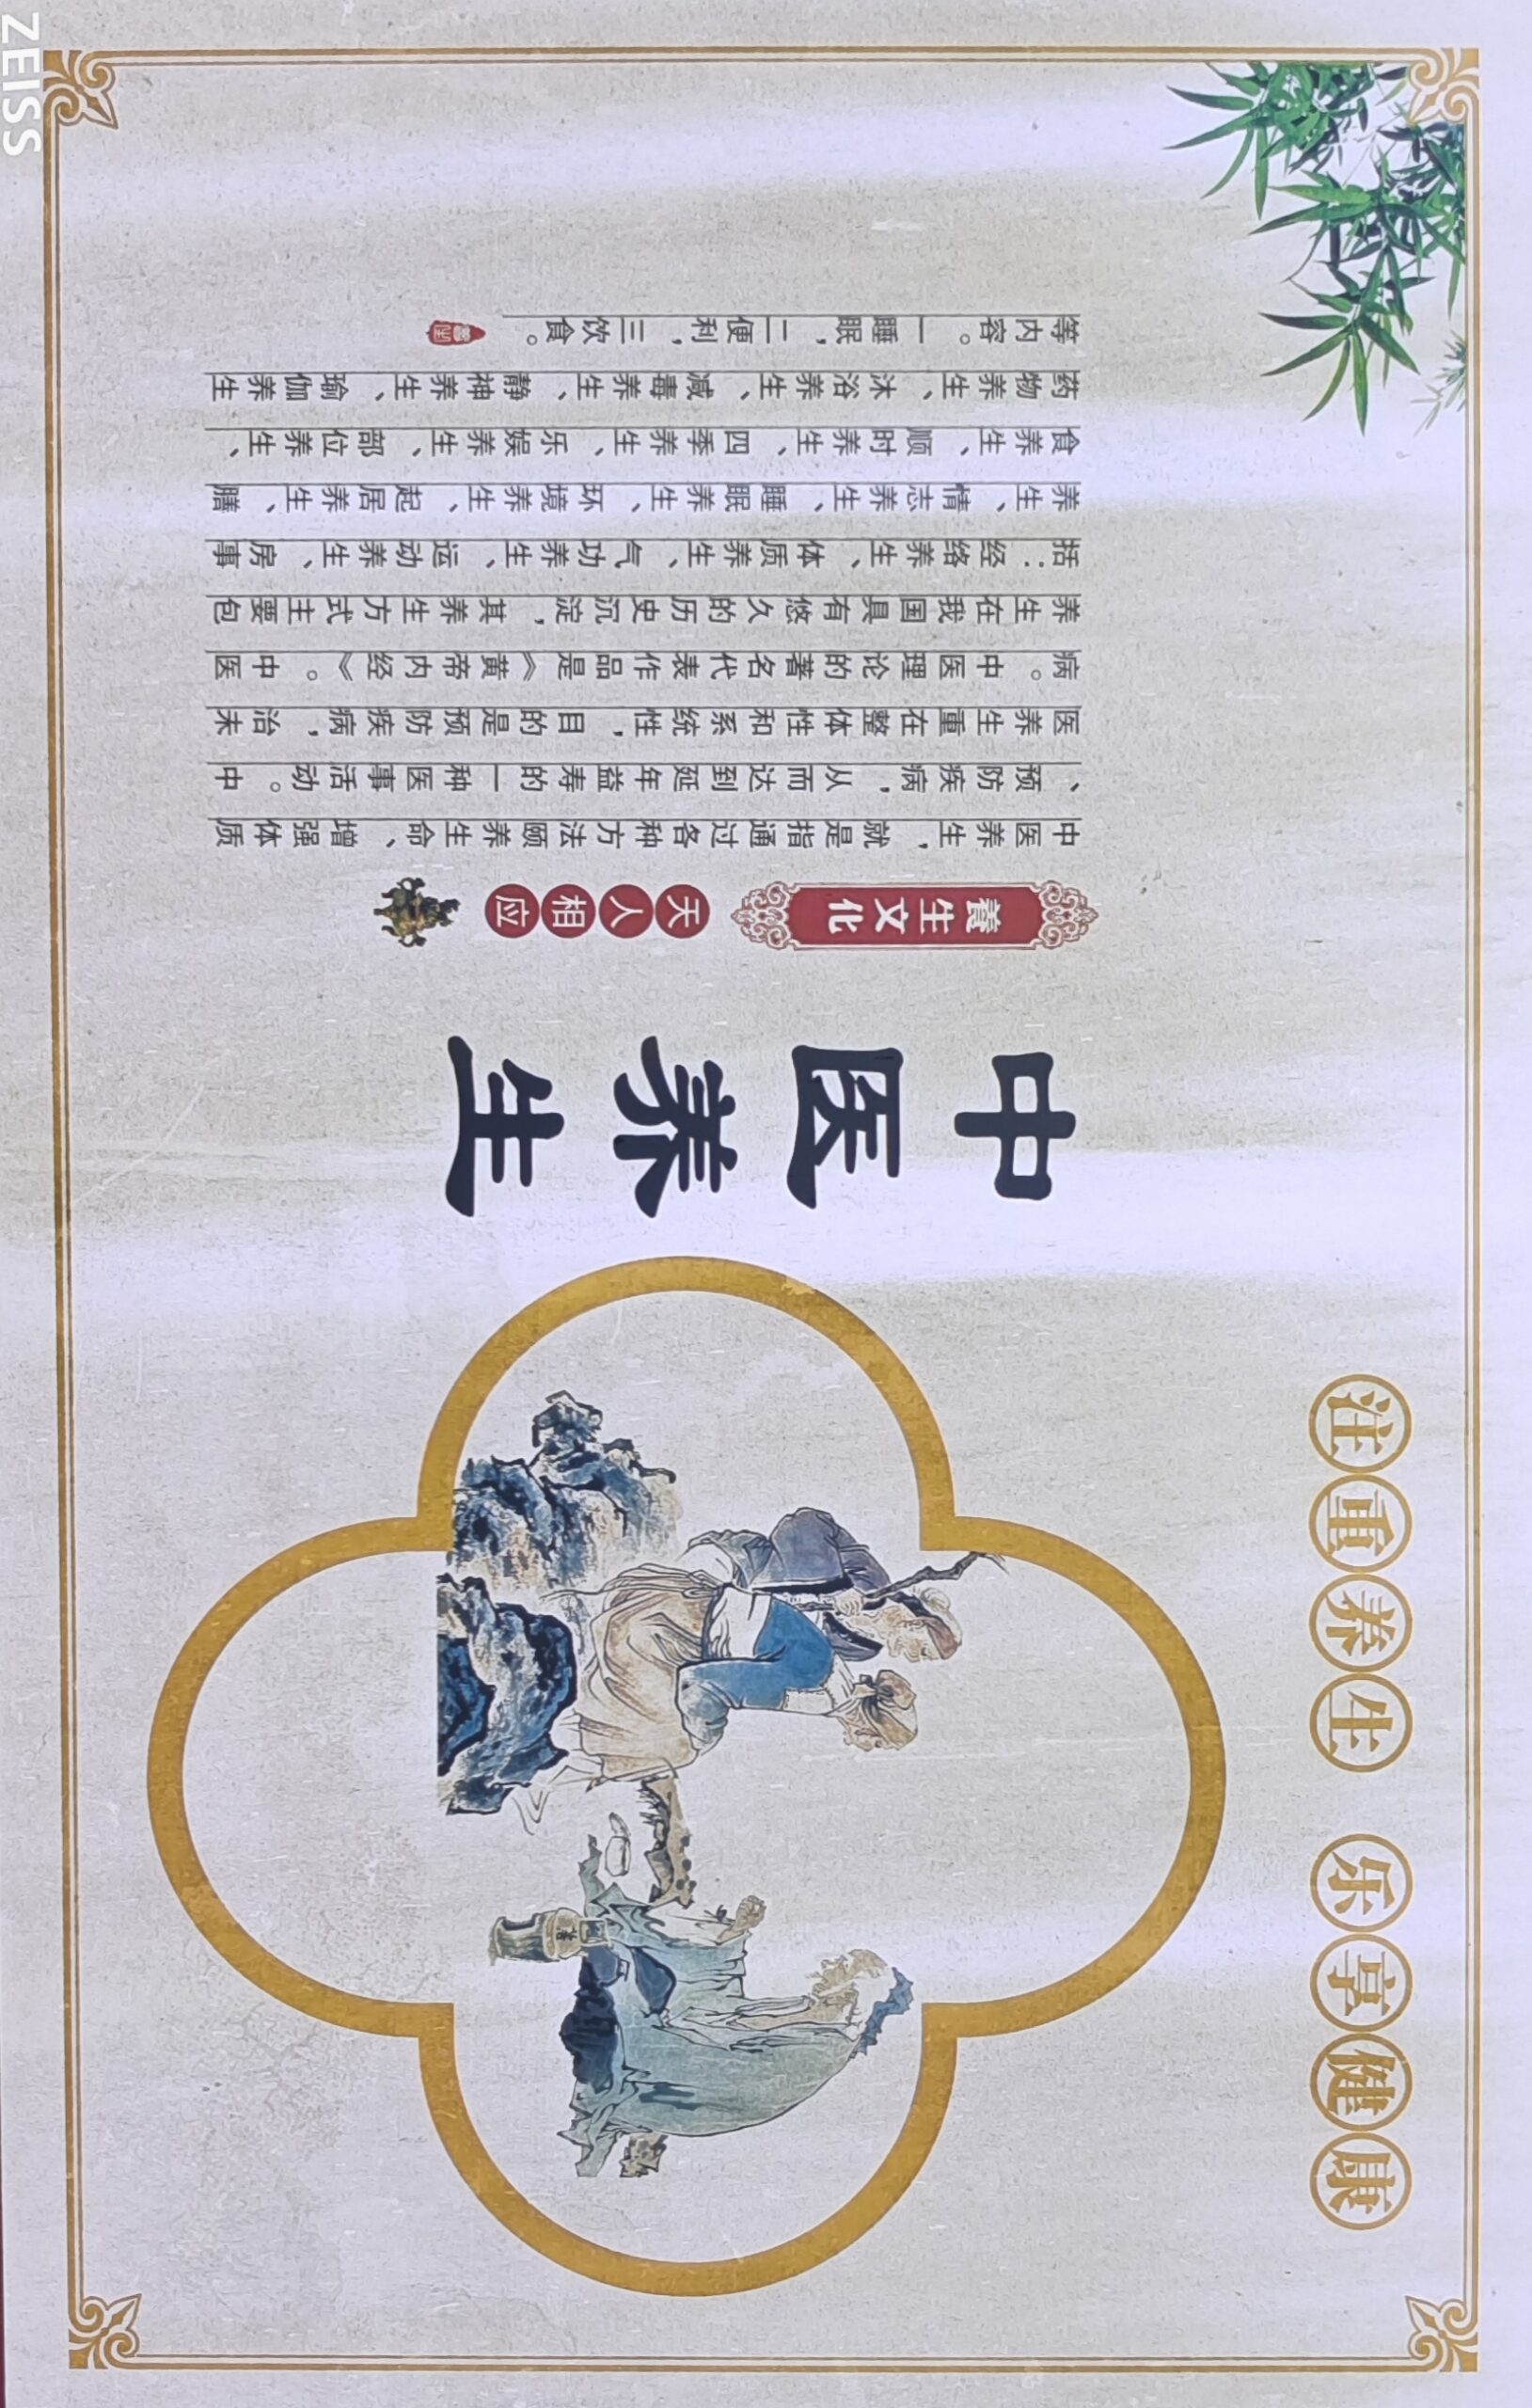 注重养生 乐享健康
中医养生
養生文化
天人相应
中医养生，就是指通过各种方法颐养生命、增强体质
、预防疾病，从而达到延年益寿的一种医事活动。中
医养生重在整体性和系统性，目的是预防疾病，治未
病。中医理论的著名代表作品是《黄帝内经》。中医
养生在我国具有悠久的历史沉淀，其养生方式主要包
括：经络养生、体质养生、气功养生、运动养生、房事
养生、情志养生、睡眠养生、环境养生、起居养生、膳
食养生、顺时养生、四季养生、乐娱养生、部位养生、
药物养生、沐浴养生、减毒养生、静神养生、瑜伽养生
等内容。一睡眠，二便利，三饮食。
ZEISS